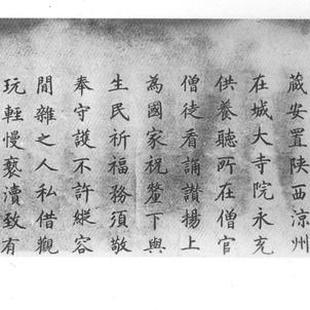 藏安置陝西涼州
在城大寺院永充
供養聽所在僧官
僧徒看誦讚揚上
為國家祝釐下與
生民祈福務須敬
奉守護不許縱容
間雜之人私借觀
玩輕慢褻瀆致有